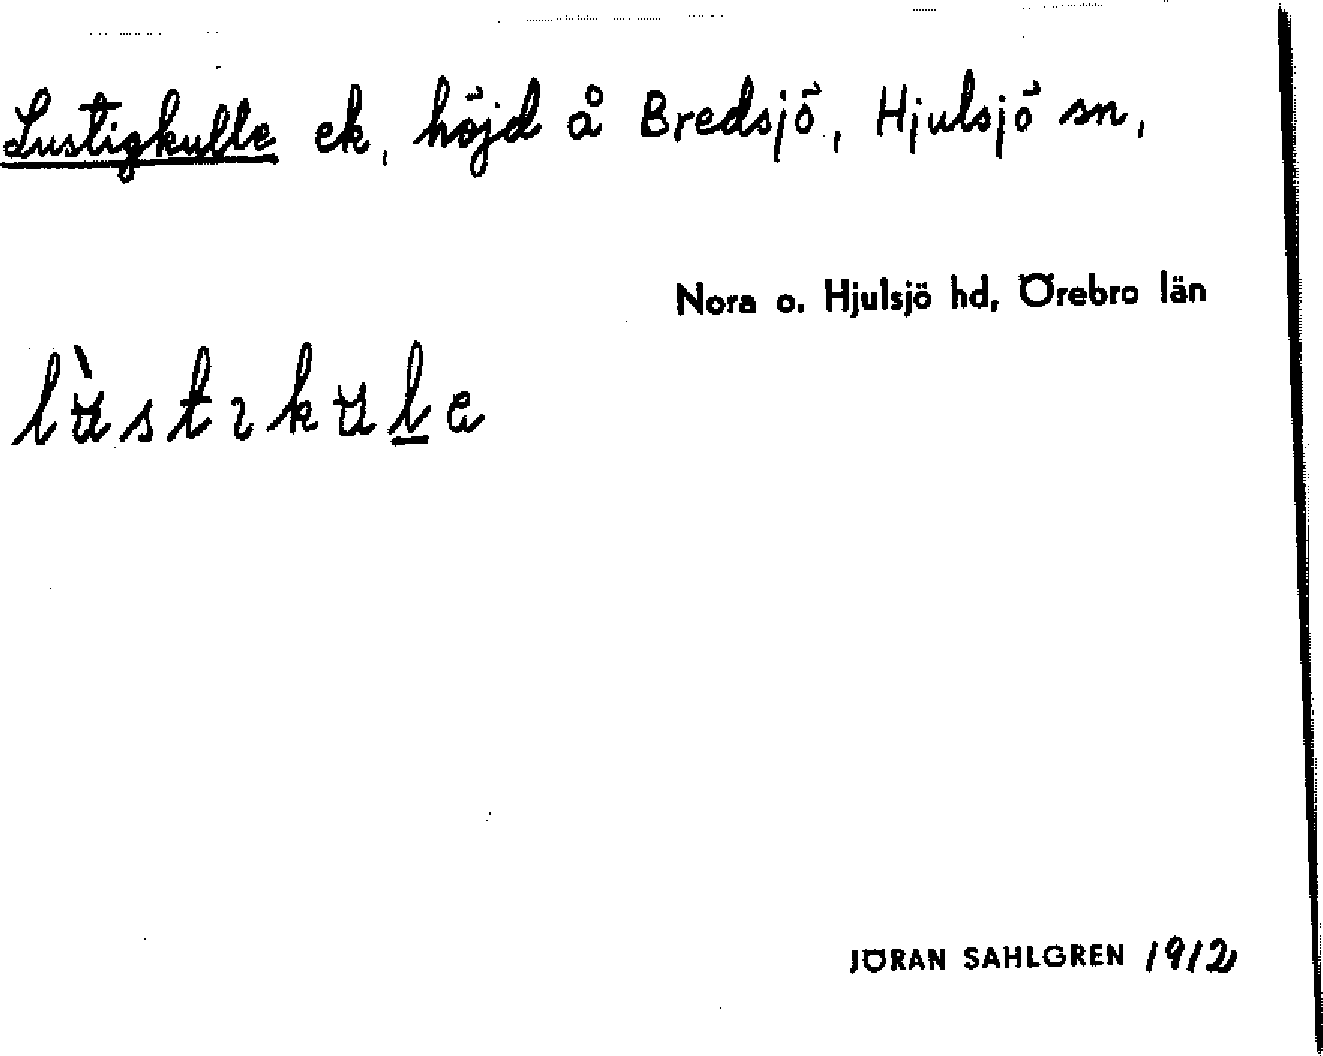 Lustigkulle ek, höjd å Bredsjö, Hjulsjö sn,
Nora o. Hjulsjö hd, Örebro län
lùstɩkul̲e
JÖRAN SAHLGREN 1912